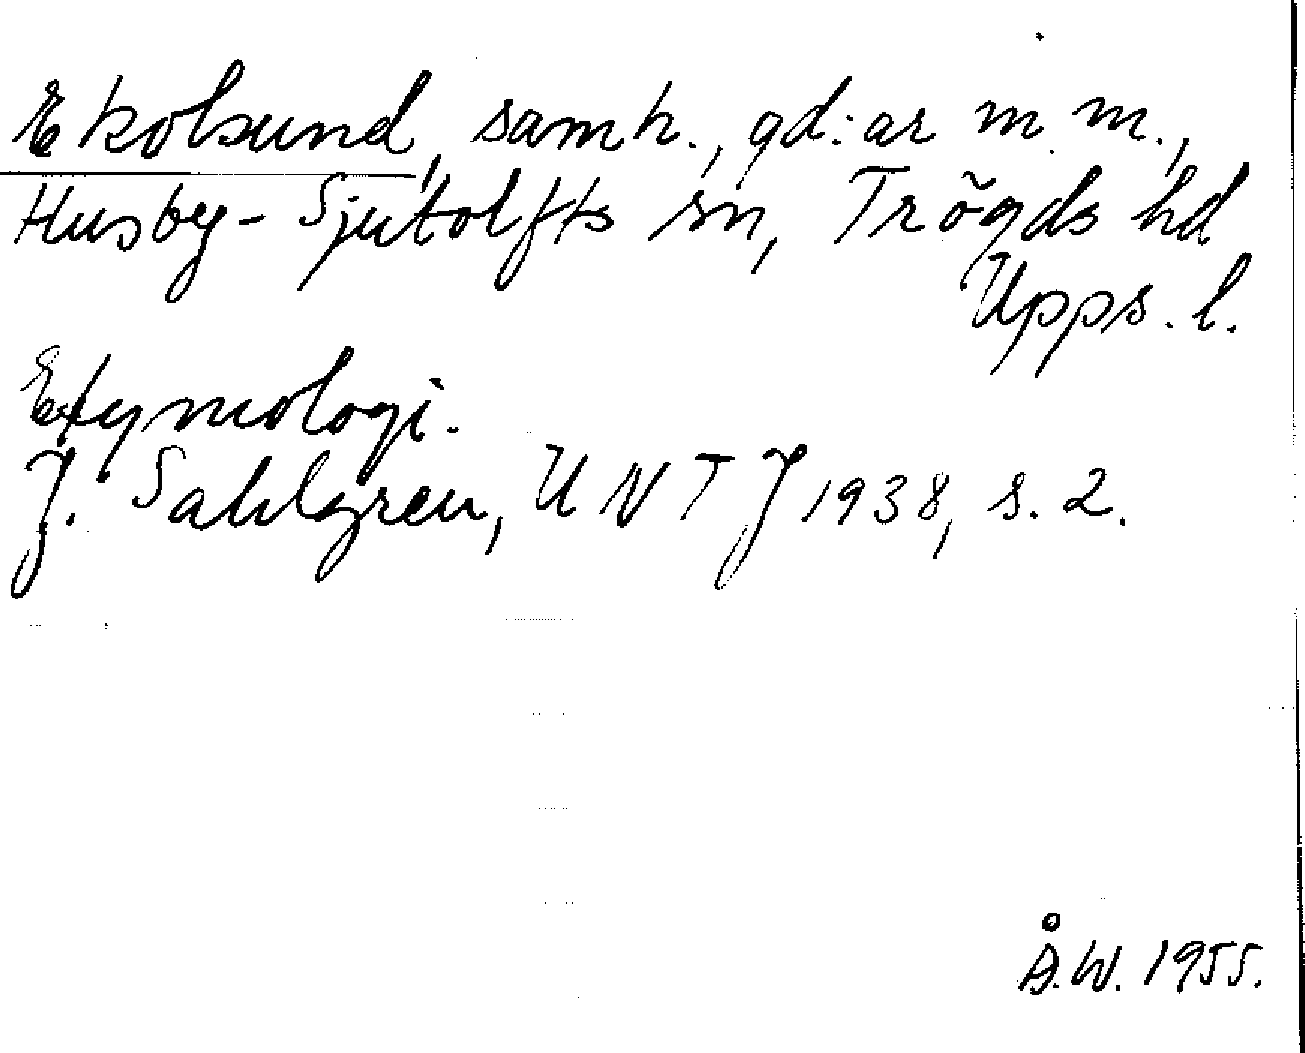 Ekolsund, samh., gd:ar m. m.,
Husby-Sjutolfts sn, Trögds hd
Upps. l.
Etymologi.
J. Sahlgren, UNTJ 1938, s. 2.
Å.W. 1955.